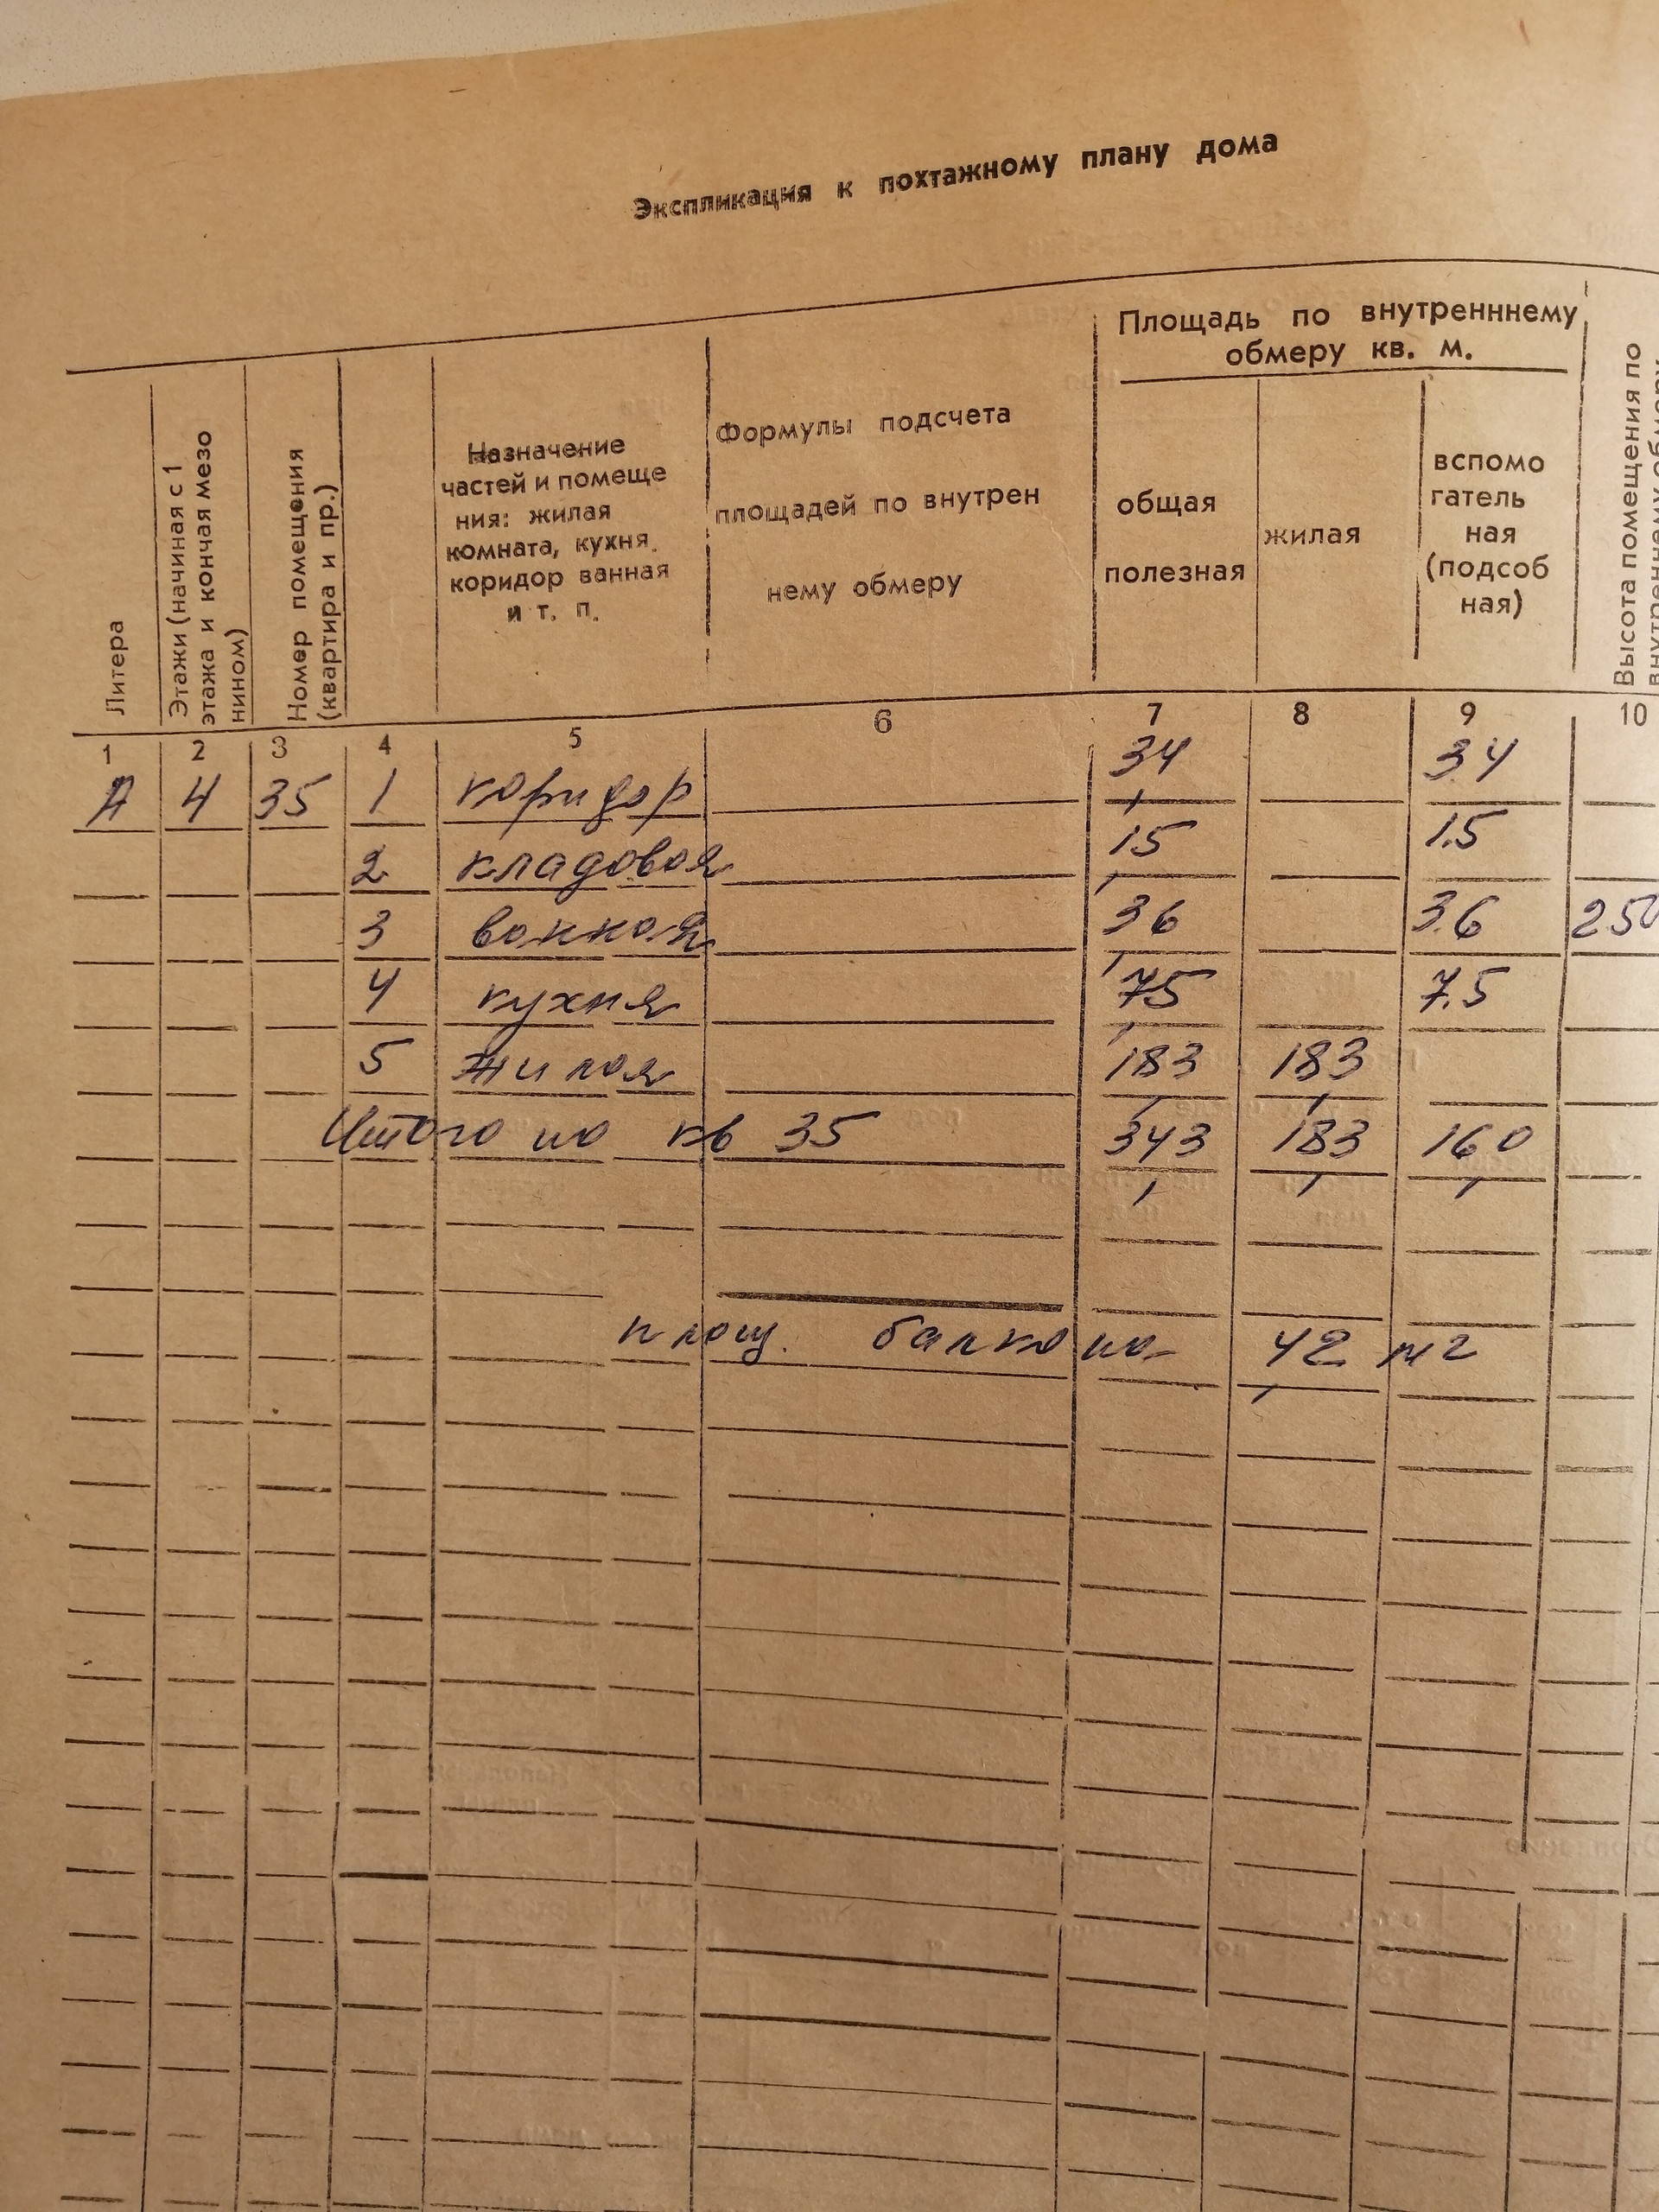 Экспликация к похтажному плану дома
Литера
Этажи (начиная с 1
этажа и кончая мезо
нином)
Номер помещения
(квартира и пр.)
Назначение
частей и помеще
ния: жилая
комната, кухня.
коридор ванная
и т. п.
Формулы подсчета
площадей по внутрен
нему обмеру
Площадь по внутренннему
обмеру кв. м.
общая
полезная
жилая
вспомо
гатель
ная
(подсоб
ная)
Высота помещения по
внутреннему обмеру
1 2 3 4 5 6 7 8 9 10
А 4 35 1 коридор 3,4 3.4
2 кладовая 1,5 1.5
3 ванная 3,6 3.6 250
4 кухня 7,5 7.5
5 жилая 18,3 18,3
Итого по кв 35 34,3 18,3 16,0
площ. балкона- 4,2 м2